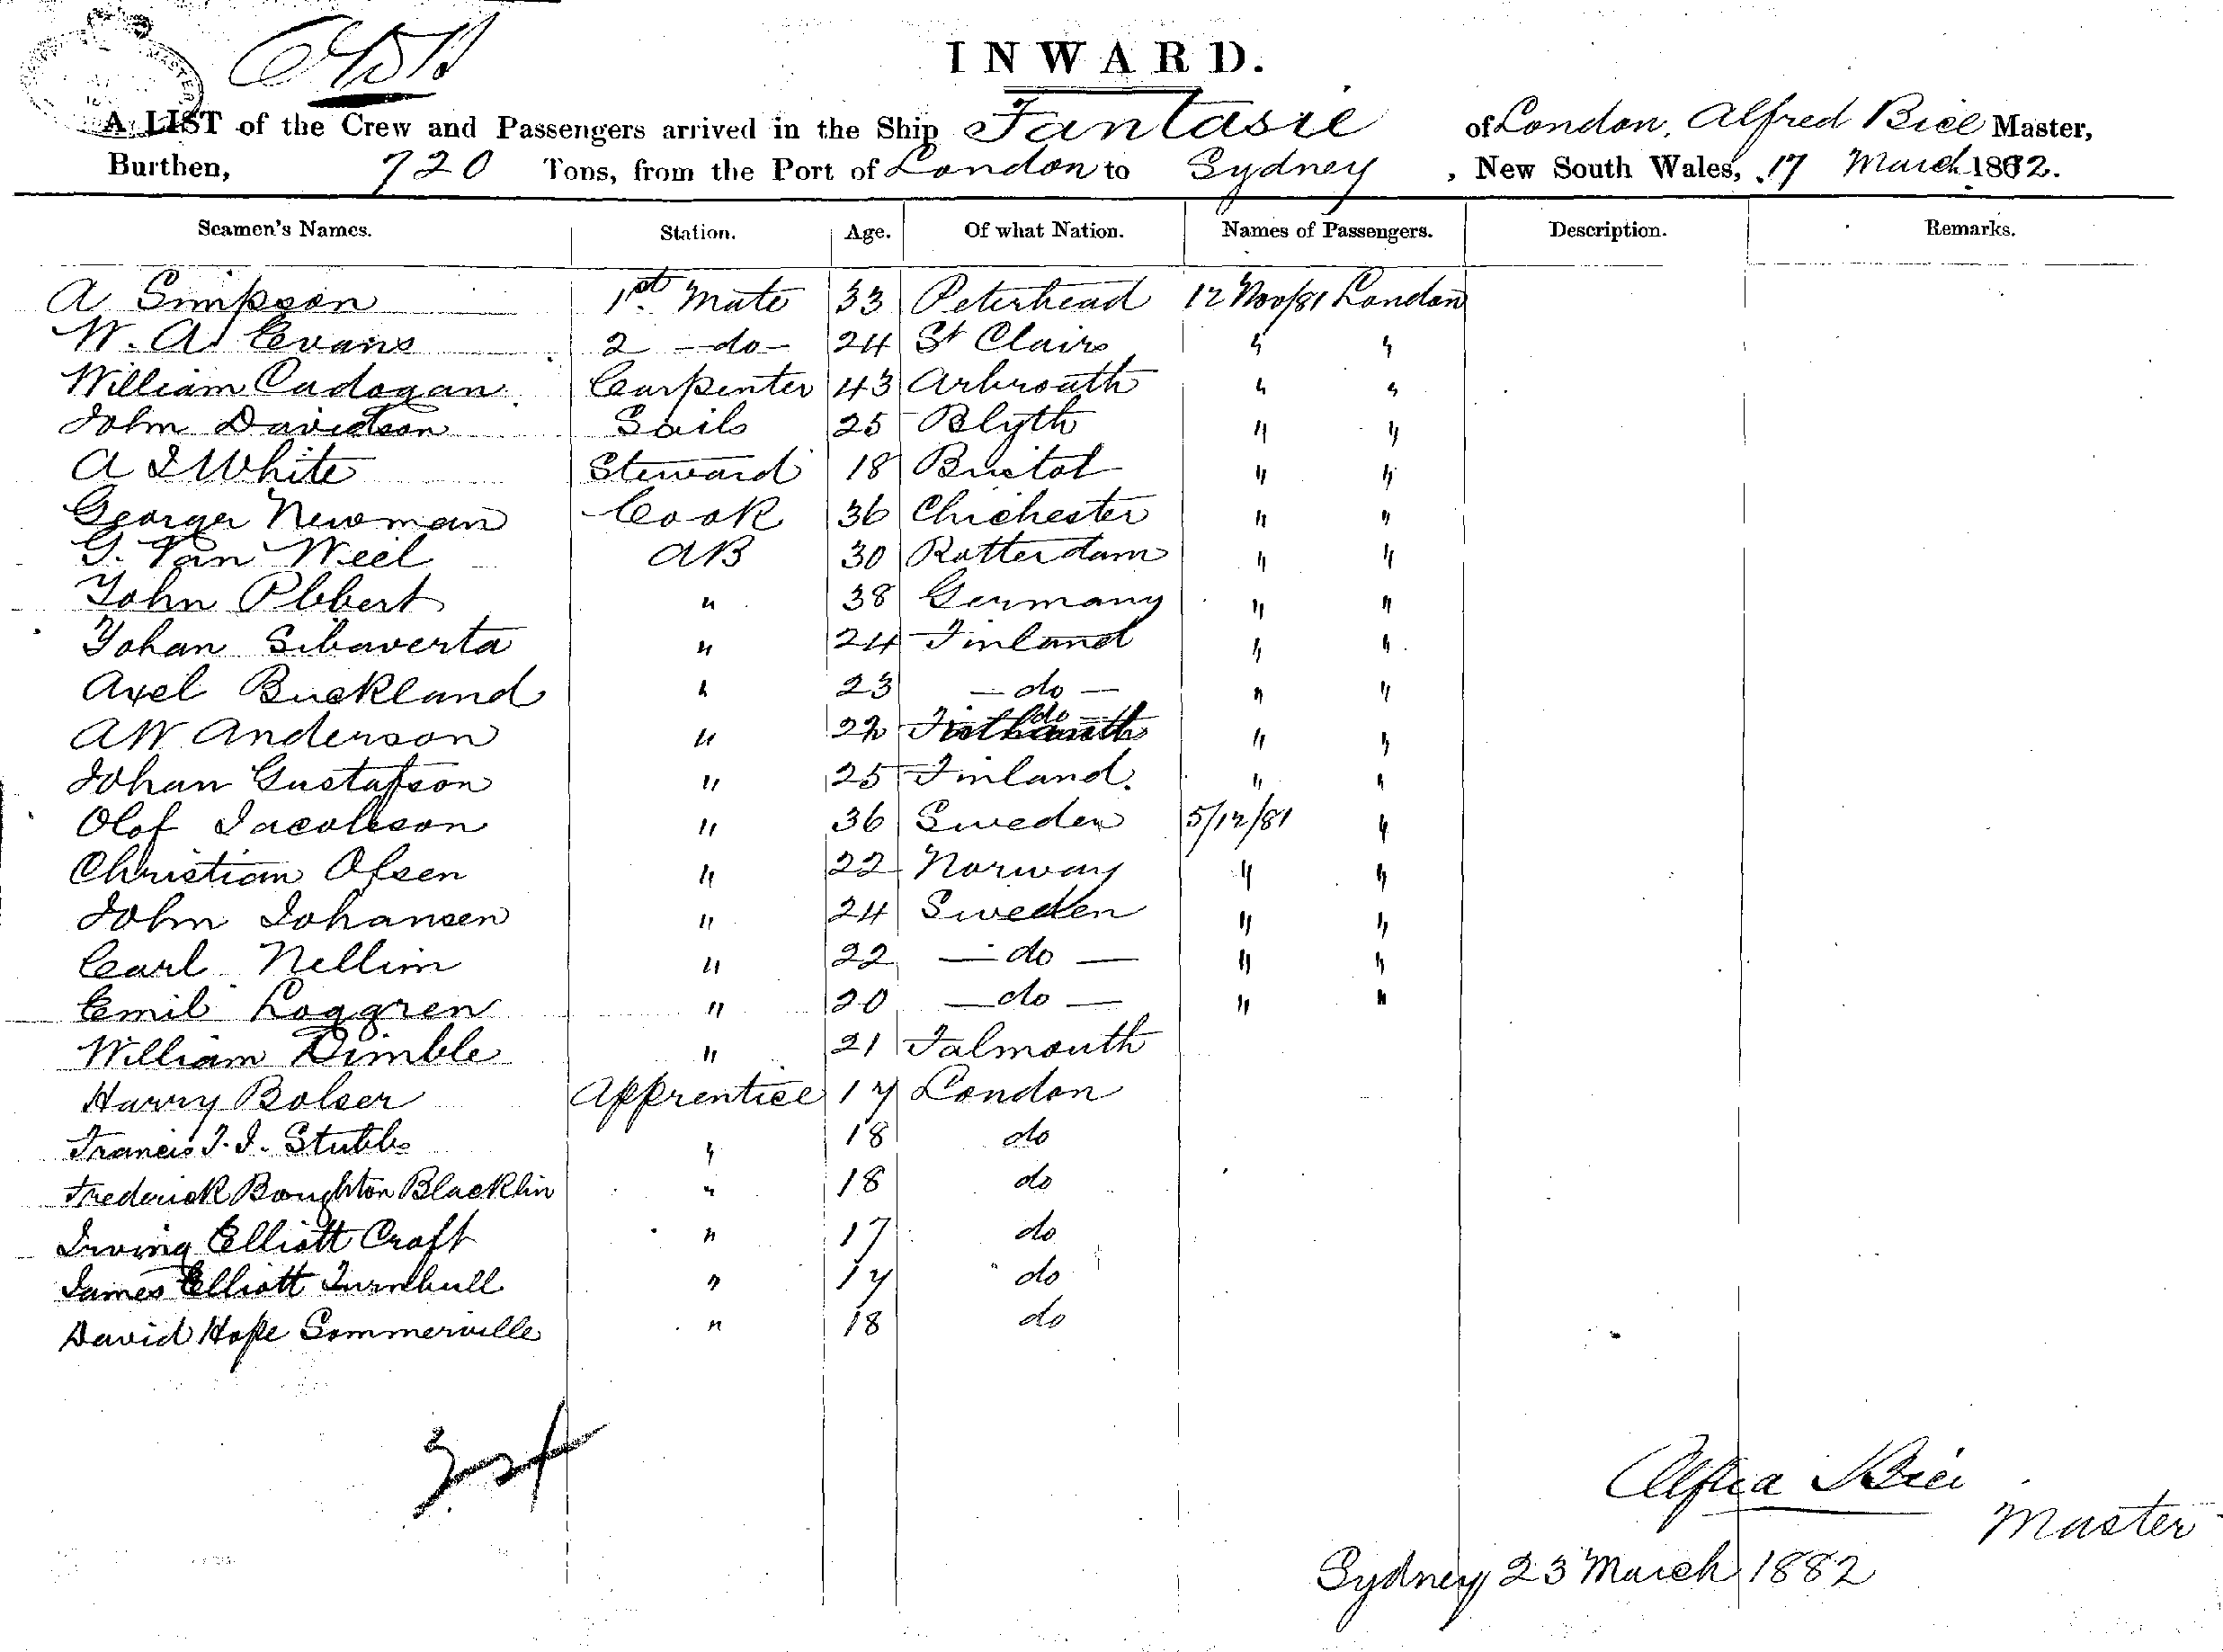 INWARD.
A LIST of the Crew and Passengers arrived in the Ship Fantasie of London, Alfred Bice Master,
Burthen, 720 Tons, from the Port of London to Sydney, New South Wales, 17 March 1882.
Seamen's Names. Station. Age. Of what Nation. Names of Passengers. Description. Remarks.
A Simpson 1st Mate 33 Peterhead 12 Nov/81 London
W. A. Evans 2 -do- 24 St Clairs " "
William Cadogan Carpenter 43 Arbroath " "
John Davidson Sails 25 Blyth " "
A J White Steward 18 Bristol " "
George Newman Cook 36 Chichester " "
G. Van Weel AB 30 Rotterdam " "
John Obbert " 38 Germany " "
Johan Sibaverta " 24 Finland " "
Axel Buckland " 23 -do- " "
AW Anderson " 22 do " "
Johan Gustafson " 25 Finland. " "
Olof Jacobson " 36 Sweden 5/12/81 "
Christian Olsen " 22 Norway " "
John Johansen " 24 Sweden " "
Carl Nellim " 22 -do- " "
Emil Loggren " 20 -do- " "
William Dimble " 21 Falmouth
Harry Bolser Apprentice 17 London
Francis J. J. Stubbs " 18 do
Frederick Boughton Blacklin " 18 do
Irving Elliott Craft " 17 do
James Elliott Turnbull " 17 do
David Hope Sommerville " 18 do
Alfred Bice
Master
Sydney 23 March 1882